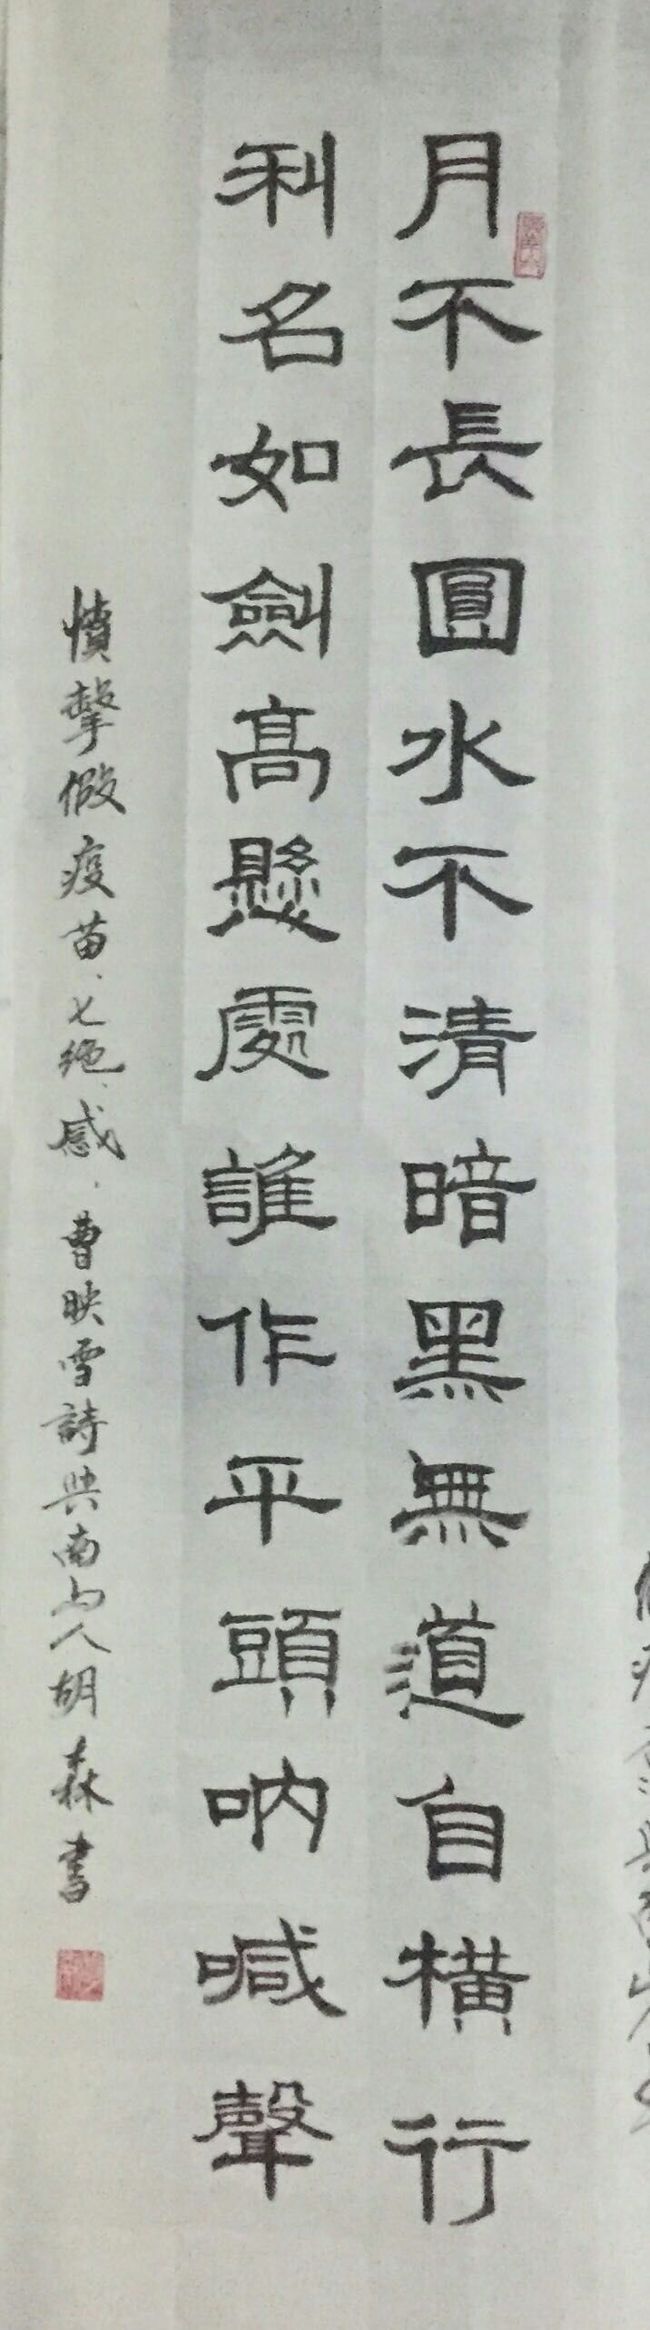 月不長圓水不清暗黑無道自橫行
利名如劍高懸處誰作平頭吶喊聲
憤擊假疫苗、七绝、感、曹映雪詩典南山人胡森書